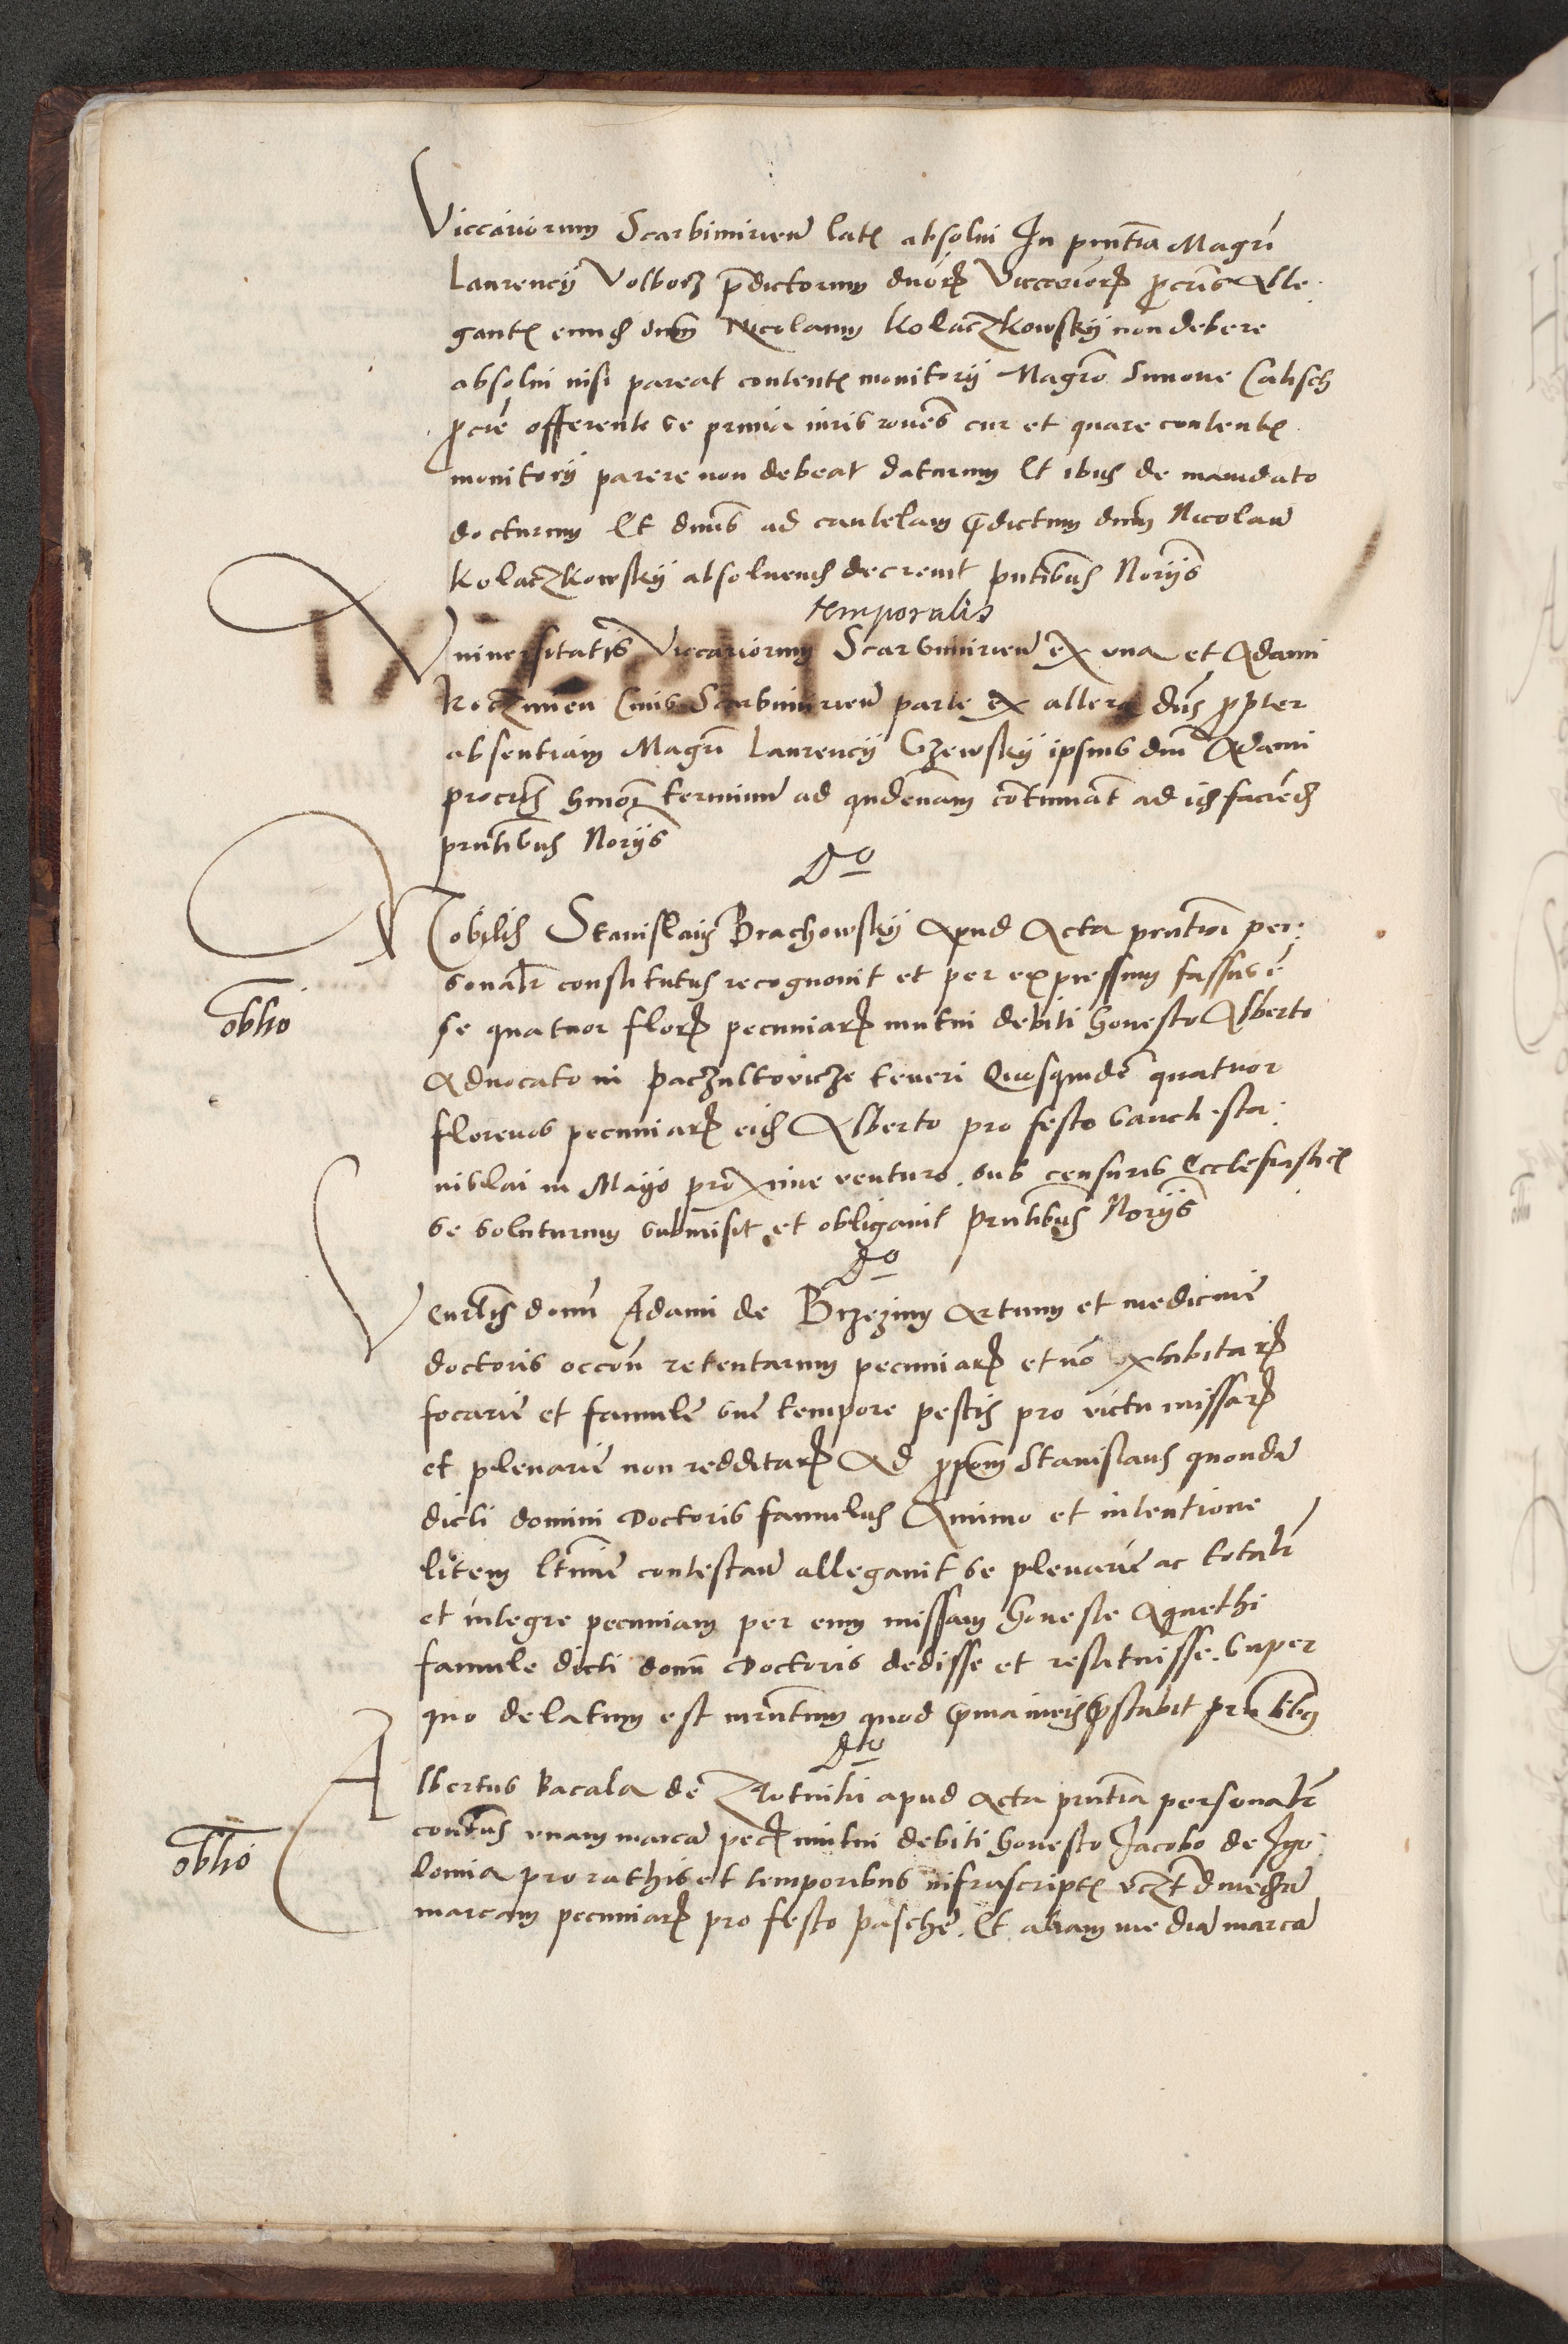 Viccariorum Scarbimirien̄ latꝭ absolui In pn̄tia Magrī
Laurencÿ Volborz p̄dictorum dnōrꝝ Viccariorꝝ ꝓcrīs Alle-
gantꝭ eundꝫ dnm̄ Nicolaum Kolaczkowskÿ non debere
absolui nisi pareat contentꝭ monitorÿ Magrō Simone Calisch
ꝓcrē offerente se
monitorÿ parere non debeat daturum Et ibidꝫ de mandato
docturum Et dnūs ad cautelam p̄dictum dnm̄ Nicolaū
Kolaczkowskÿ absoluendꝫ decreuit pn̄tibus Norÿs
temporalis
Vniuersitatis Viccariorum Scarbimirien̄ ex vna et Adami
Scarbimirien̄ parte ex altera dn̄s ꝓpter
absentiam Magrī Laurencÿ Gzewskÿ ipsius dnī Adami
procrīs hmōi terminū ad qndenam contīnuat ad idꝫ faciendꝫ
prn̄tibus Norÿs
Do
Nobilis Stanislaus Brachowskÿ Apud Acta prn̄tia per-
sonalr̄ constitutus recognouit et per expressum fassus ē
se quatuor florꝝ pecuniarꝝ mutui debiti honesto Alberto
Aduocato in Paczultowicze teneri Quosquidē quatuor
florenos pecuniarꝝ eidꝫ Alberto pro festo sancti sta-
nislai in Mayo proxime venturo sub censuris Ecclesiasticꝭ
se soluturum submisit et obligauit prn̄tibus Norÿs
oblio
Do
Venrlīs domī Adami de Brzeziny Artium et medicinē
doctoris occōn̄ retentarum pecuniarꝝ et nō exhibitarꝝ
focariē et famulē suē tempore pestis pro victu missarꝝ
et plenariē non redditarꝝ Ad Stanislaus quondā
dicti domini Doctoris famulus Animo et intentione
litem contestan̄ allegauit se plenariē ac totalr̄
et integre pecuniam per eum missam honeste Agnethi
famule dicti domī Doctoris dedisse et restituisse. Super
quo delatum est iurn̄tum quod prn̄tibus
Dto
Albertus Bacala de Zlotniki apud Acta prn̄tia personalr̄
constitus vnam marcā pecꝝ mutui debiti honesto Jacobo de Igo-
lomia pro rathis et temporibus infrascriptꝭ vczt mediā
marcam pecuniarꝝ pro festo paschē. Et aliam mediā marcā
oblio